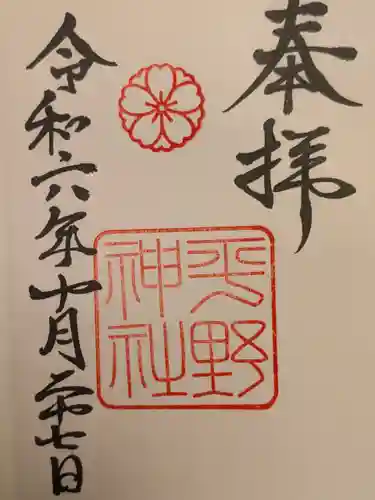 奉拝
平野
神社
令和六年十月二十七日